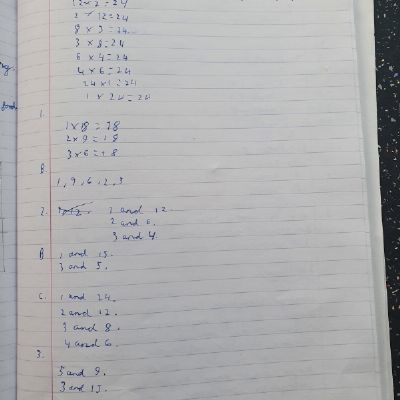 12 x 2 = 24
2 x 12 = 24
8 x 3 = 24
3 x 8 = 24
6 x 4 = 24
4 x 6 = 24
24 x 1 = 24
1 x 24 = 24
1.
1 x 18 = 18
2 x 9 = 18
3 x 6 = 18
B.
1, 9, 6, 2, 3
2. 1 and 12.
2 and 6.
3 and 4.
B 1 and 15.
3 and 5.
C. 1 and 24.
2 and 12.
3 and 8.
4 and 6.
3.
5 and 9.
3 and 15.